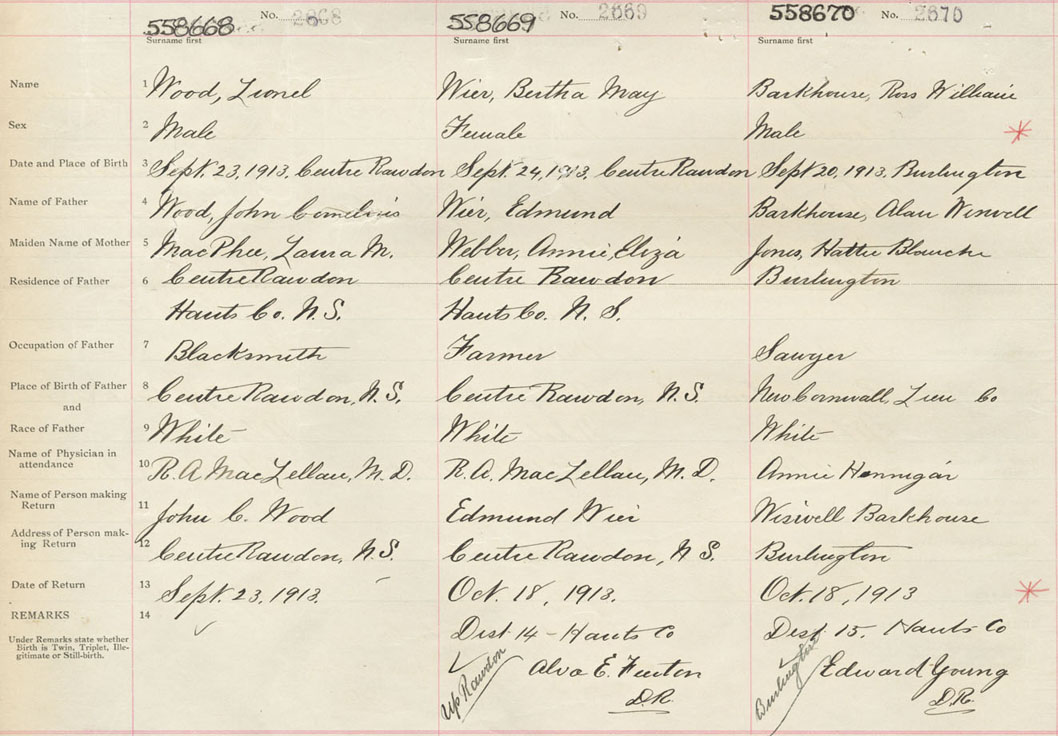 558668 No. 2668
558669 No. 2669
558670 No. 2670
Surname first Surname first Surname first
Name 1 Wood, Lionel Wier, Bertha May Barkhouse, Ross William
Sex 2 Male Female Male
Date and Place of Birth 3 Sept. 23, 1913. Centre Rawdon Sept. 24, 1913, Centre Rawdon Sept 20, 1913, Burlington
Name of Father 4 Wood, John Cornelius Wier, Edmund Barkhouse, Alan Wiswell
Maiden Name of Mother 5 MacPhee, Laura M. Webber, Annie, Eliza Jones, Hattie Blanche
Residence of Father 6 Centre Rawdon Centre Rawdon Burlington
Hants Co. N.S. Hants Co. N. S.
Occupation of Father 7 Blacksmith Farmer Sawyer
Place of Birth of Father 8 Centre Rawdon, N.S. Centre Rawdon, N.S. New Cornwall, Lun Co
and
Race of Father 9 White White White
Name of Physician in
attendance 10 R. A MacLellan, M. D. R. A. MacLellan, M. D. Annie Hennigar
Name of Person making
Return 11 John C. Wood Edmund Wier Wiswell Barkhouse
Address of Person mak-
ing Return 12 Centre Rawdon, N.S. Centre Rawdon, N S. Burlington
Date of Return 13 Sept. 23, 1913. Oct. 18, 1913. Oct. 18, 1913
REMARKS 14
Under Remarks state whether
Birth is Twin, Triplet, Ille-
gitimate or Still-birth.
Dist 14 - Hants Co Dist. 15. Hants Co
Up Rawdon Alva E. Burlington Edward Young
D.R. D.R.